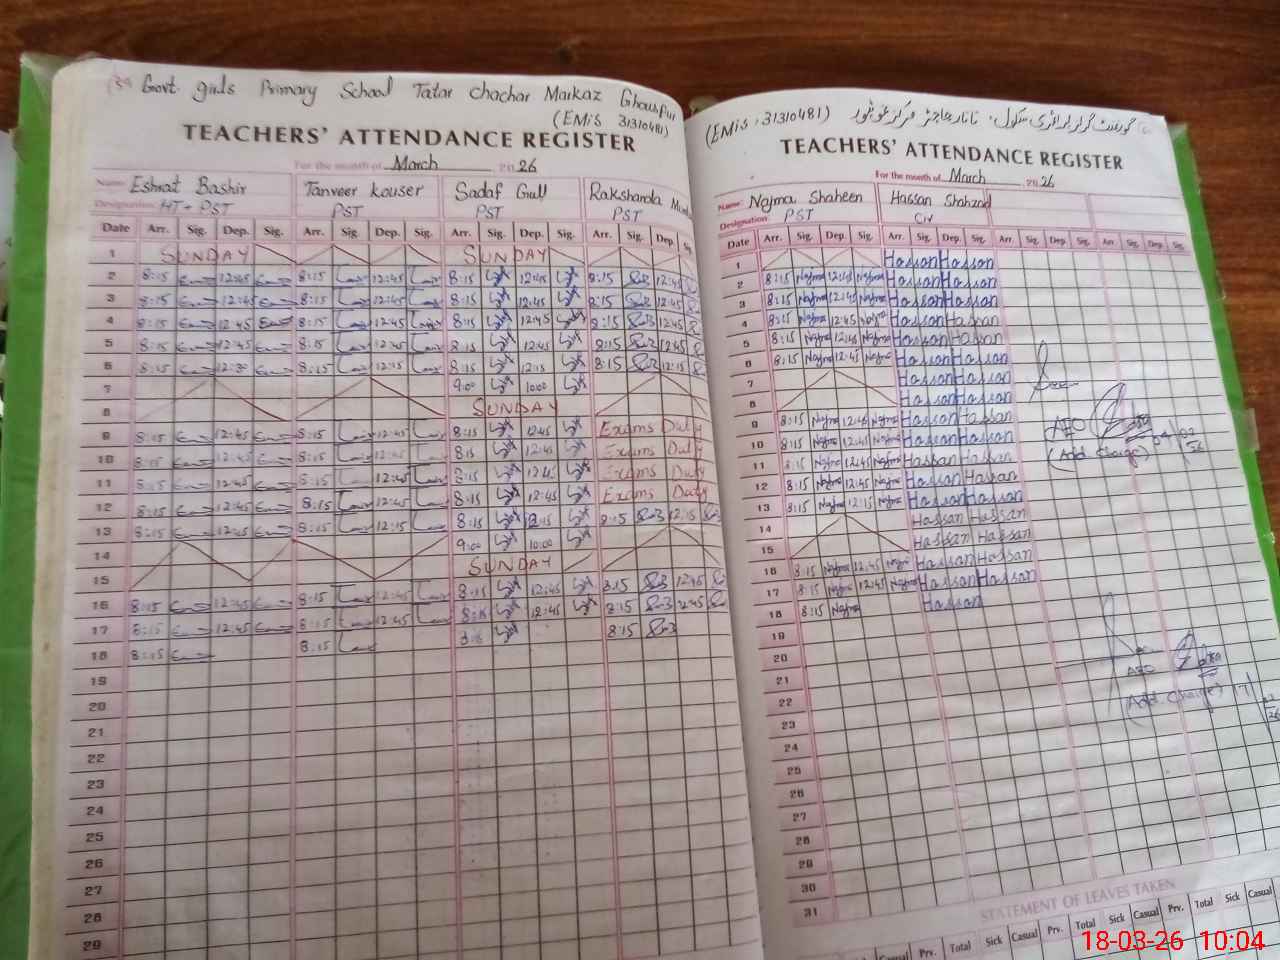 Govt. girls Primary School Tatar Chachar Markaz Ghouspur
(EMiS 31310481)
TEACHERS' ATTENDANCE REGISTER
For the month of March 2026
Name Eshrat Bashir Tanveer Kouser Sadaf Gull Rakshanda
Designation HT+PST PST PST PST
Date Arr. Sig. Dep. Sig. Arr. Sig. Dep. Sig. Arr. Sig. Dep. Sig. Arr. Sig. Dep. Sig.
1 SUNDAY SUNDAY
2 8:15 12:45 8:15 12:45 8:15 12:45 8:15 12:45
3 8:15 12:45 8:15 12:45 8:15 12:45 8:15 12:45
4 8:15 12:45 8:15 12:45 8:15 12:45 8:15 12:45
5 8:15 12:45 8:15 12:45 8:15 12:45 8:15 12:45
6 8:15 12:30 8:15 12:15 8:15 12:15 8:15 12:15
7 9:00 10:00
8 SUNDAY
9 8:15 12:45 8:15 12:45 8:15 12:45 Exams Duty
10 8:15 12:45 8:15 12:45 8:15 12:45 Exams Duty
11 8:15 12:45 8:15 12:45 8:15 12:45 Exams Duty
12 8:15 12:45 8:15 12:45 8:15 12:45 Exams Duty
13 8:15 12:45 8:15 12:15 8:15 12:15 8:15 12:15
14 9:00 10:00
15 SUNDAY
16 8:15 12:45 8:15 12:45 8:15 12:45 8:15 12:45
17 8:15 12:45 8:15 12:45 8:15 12:45 8:15 12:45
18 8:15 8:15 8:15 8:15
19
20
21
22
23
24
25
26
27
28
29
(EMiS : 31310481) گورنمنٹ گرلز پرائمری سکول تاتار چاچڑ مرکز غوثپور
TEACHERS' ATTENDANCE REGISTER
For the month of March 2026
Name: Najma Shaheen Hassan Shahzad
Designation PST CIV
Date Arr. Sig. Dep. Sig. Arr. Sig. Dep. Sig. Arr. Sig. Dep. Sig. Arr. Sig. Dep. Sig.
1 Hassan Hassan
2 8:15 Najma 12:45 Najma Hassan Hassan
3 8:15 Najma 12:45 Najma Hassan Hassan
4 8:15 Najma 12:45 Najma Hassan Hassan
5 8:15 Najma 12:45 Najma Hassan Hassan
6 8:15 Najma 12:45 Najma Hassan Hassan
7 Hassan Hassan
8 Hassan Hassan
9 8:15 Najma 12:45 Najma Hassan Hassan
10 8:15 Najma 12:45 Najma Hassan Hassan
11 8:15 Najma 12:45 Najma Hassan Hassan
12 8:15 Najma 12:45 Najma Hassan Hassan
13 8:15 Najma 12:15 Najma Hassan Hassan
14 Hassan Hassan
15 Hassan Hassan
16 8:15 Najma 12:45 Najma Hassan Hassan
17 8:15 Najma 12:45 Najma Hassan Hassan
18 8:15 Najma Hassan
19
20
21
22
23
24
25
26
27
28
29
30
31
AEO
(Add. Charge)
AEO
(Add. Charge)
STATEMENT OF LEAVES TAKEN
Casual Prv. Total Sick Casual Prv. Total Sick Casual Prv. Total Sick Casual
18-03-26 10:04